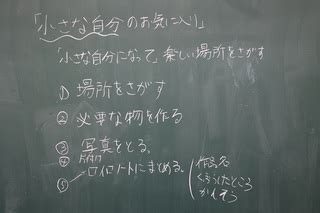 「小さな自分のお気に入り」
「小さな自分になって」楽しい場所をさがす
① 場所をさがす
② 必要な物を作る
③ 写真をとる。
④
⑤ ロイロノートにまとめる。
作品名
くふうしたところ
かんそう